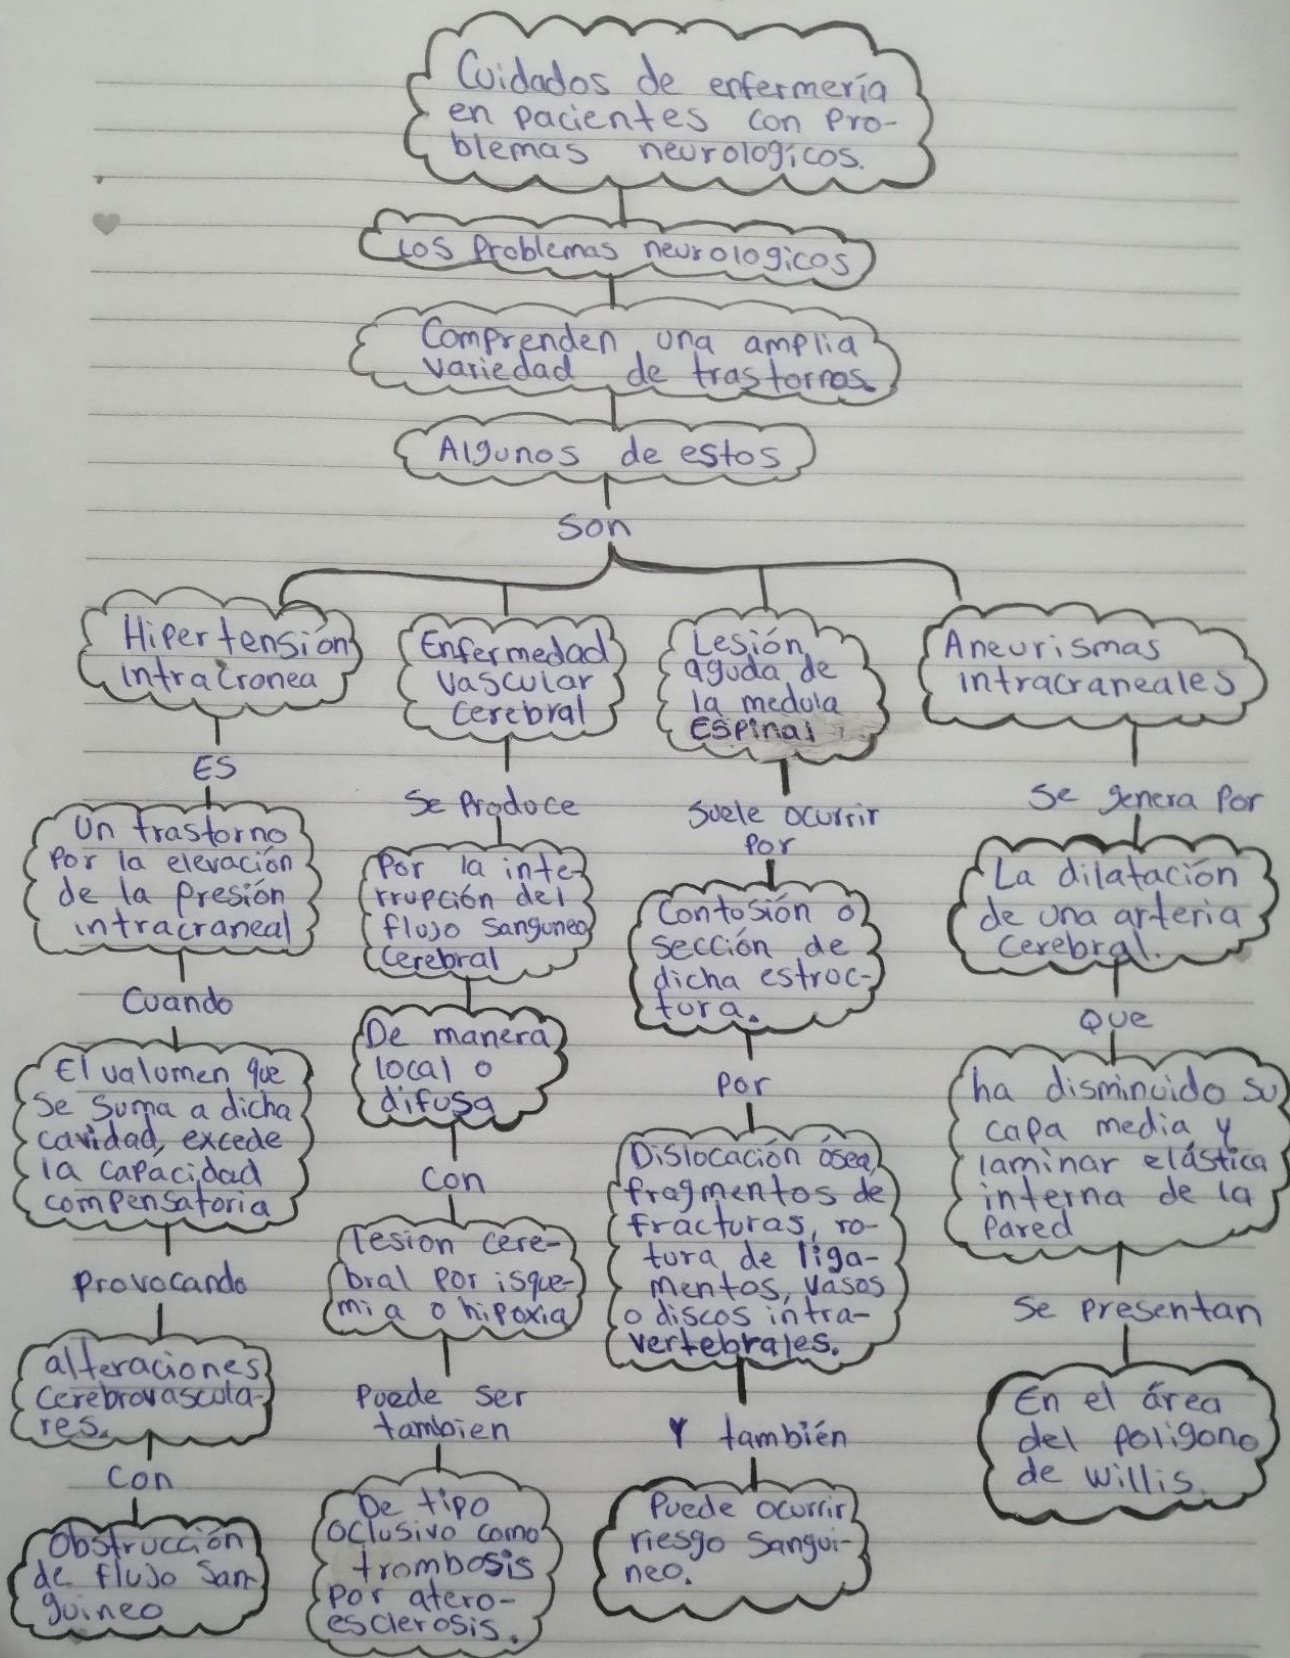 Cuidados de enfermería
en pacientes con pro-
blemas neurologicos.
Los problemas neurologicos
Comprenden una amplia
variedad de trastornos.
Algunos de estos
son
Hipertensión
intracronea
ES
Un trastorno
por la elevación
de la presión
intracraneal
Cuando
El valumen que
se suma a dicha
cavidad, excede
la capacidad
compensatoria
provocando
alteraciones
cerebrovascula-
res.
con
Obstrucción
de flujo san-
guineo
Enfermedad
vascular
cerebral
se produce
Por la inte-
rrupción del
flujo sanguneo
cerebral
De manera
local o
difusa
con
lesion cere-
bral por isque-
mia o hipoxia
puede ser
tambien
De tipo
oclusivo como
trombosis
por atero-
esclerosis.
Lesión
aguda de
la medula
Espinal
suele ocurrir
por
Contusión o
sección de
dicha estruc-
tura.
por
Dislocación ósea,
fragmentos de
fracturas, ro-
tura de liga-
mentos, vasos
o discos intra-
vertebrales.
Y también
Puede ocurrir
riesgo sangui-
neo.
Aneurismas
intracraneales
se genera por
La dilatación
de una arteria
cerebral.
que
ha disminuido su
capa media y
laminar elástica
interna de la
pared
se presentan
En el área
del poligono
de willis.